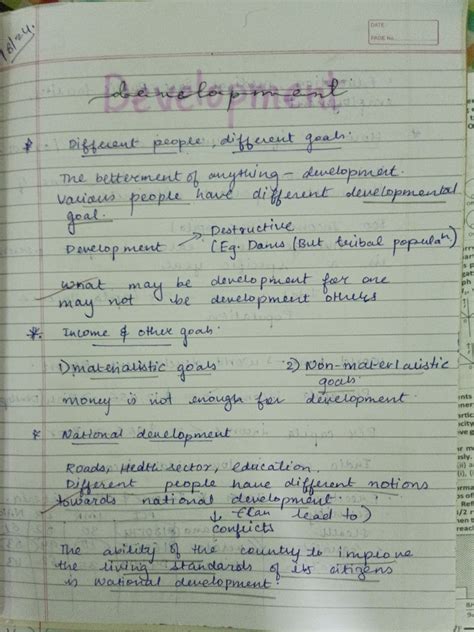 DATE:
PAGE No.:
/8/24.
Development
* Different people, different goals.
The betterment of anything - development.
Various people have different developmental
goal.
Development → Destructive
(Eg. Dams (But tribal populaⁿ)
What may be development for one
may not be development others
*. Income & other goals.
1) materialistic goals 2) Non-materialistic
goals
money is not enough for development.
* National development
Roads, Helth sector, education.
Different people have different notions
towards national development.
↓ (can lead to)
conflicts
The ability of the country to improve
the living standards of its citizens
is National development.